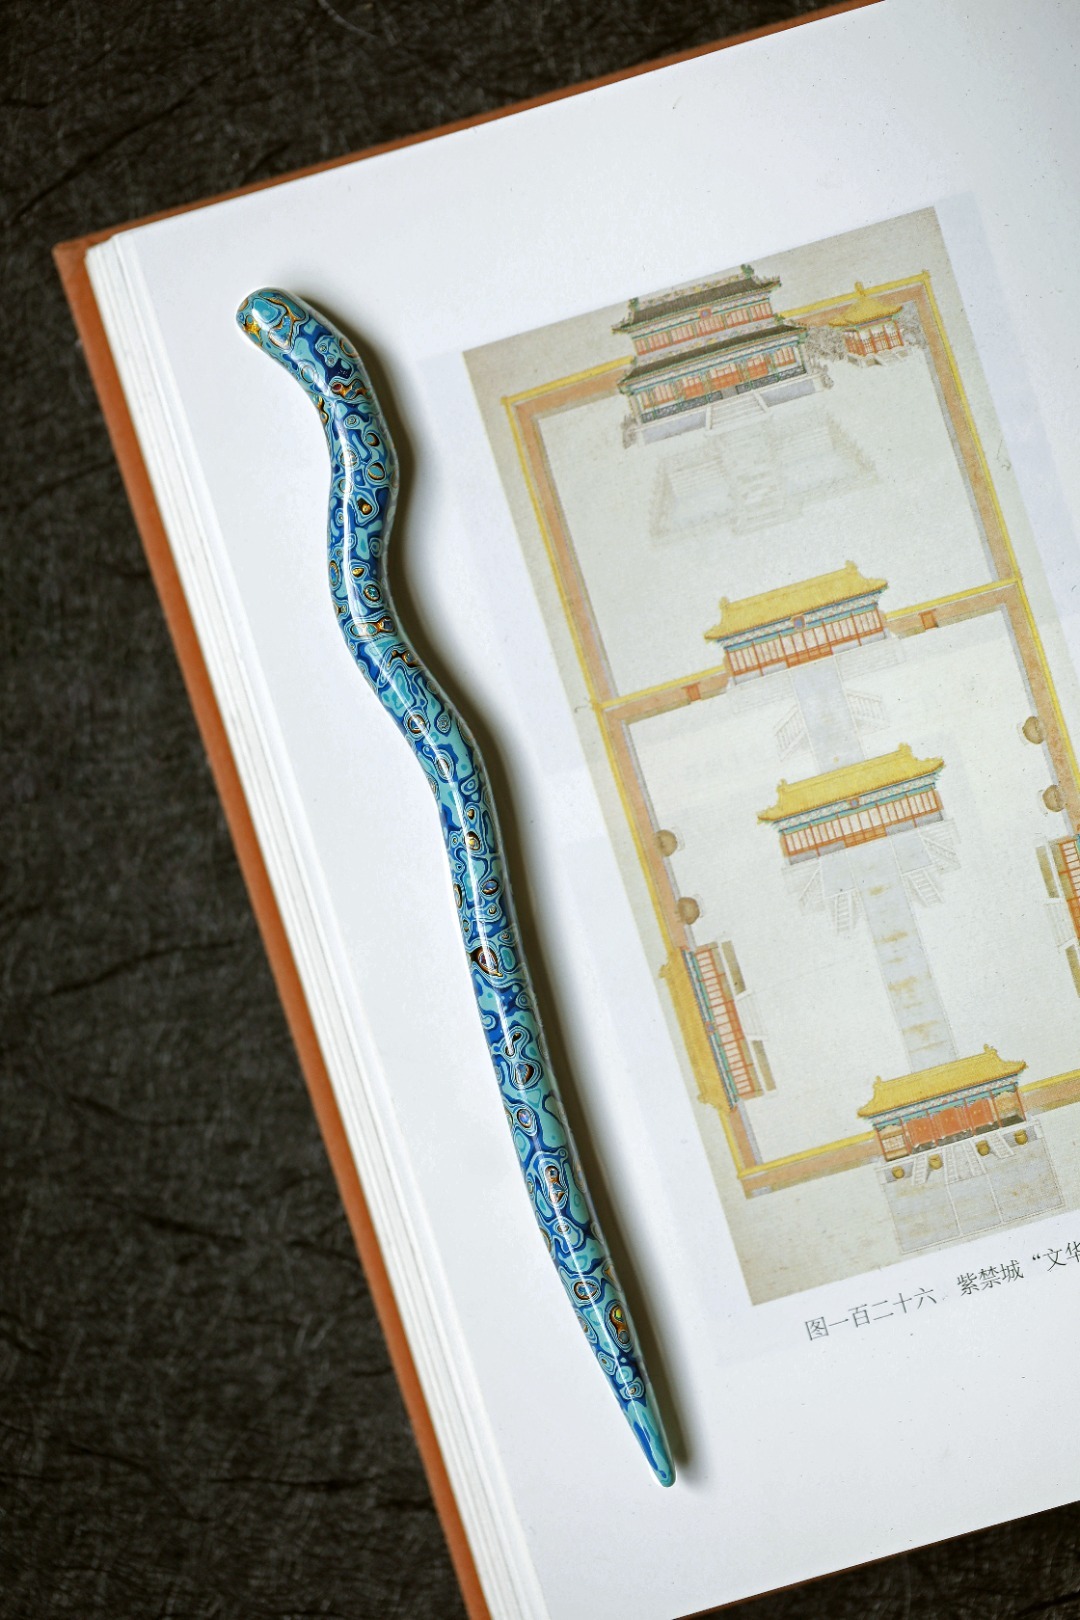 图一百二十六 紫禁城“文华